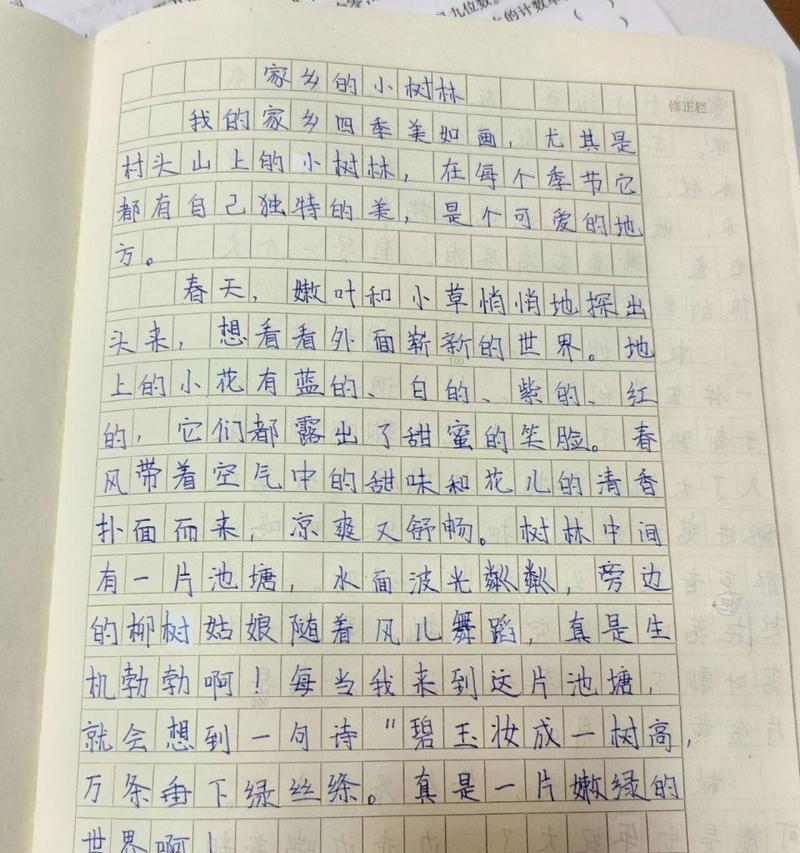 九位数。
的计数单
(　　)
家乡的小树林
修正栏
我的家乡四季美如画，尤其是
村头山上的小树林，在每个季节它
都有自己独特的美，是个可爱的地
方。
春天，嫩叶和小草悄悄地探出
头来，想看看外面崭新的世界。地
100
上的小花有蓝的、白的、紫的、红
的，它们都露出了甜蜜的笑脸。春
风带着空气中的甜味和花儿的清香
扑面而来，凉爽又舒畅。树林中间
有一片池塘，水面波光粼粼，旁边
的柳树姑娘随着风儿舞蹈，真是生
机勃勃啊！每当我来到这片池塘，
200
就会想到一句诗“碧玉妆成一树高，
万条垂下绿丝绦。真是一片嫩绿的
世界啊！